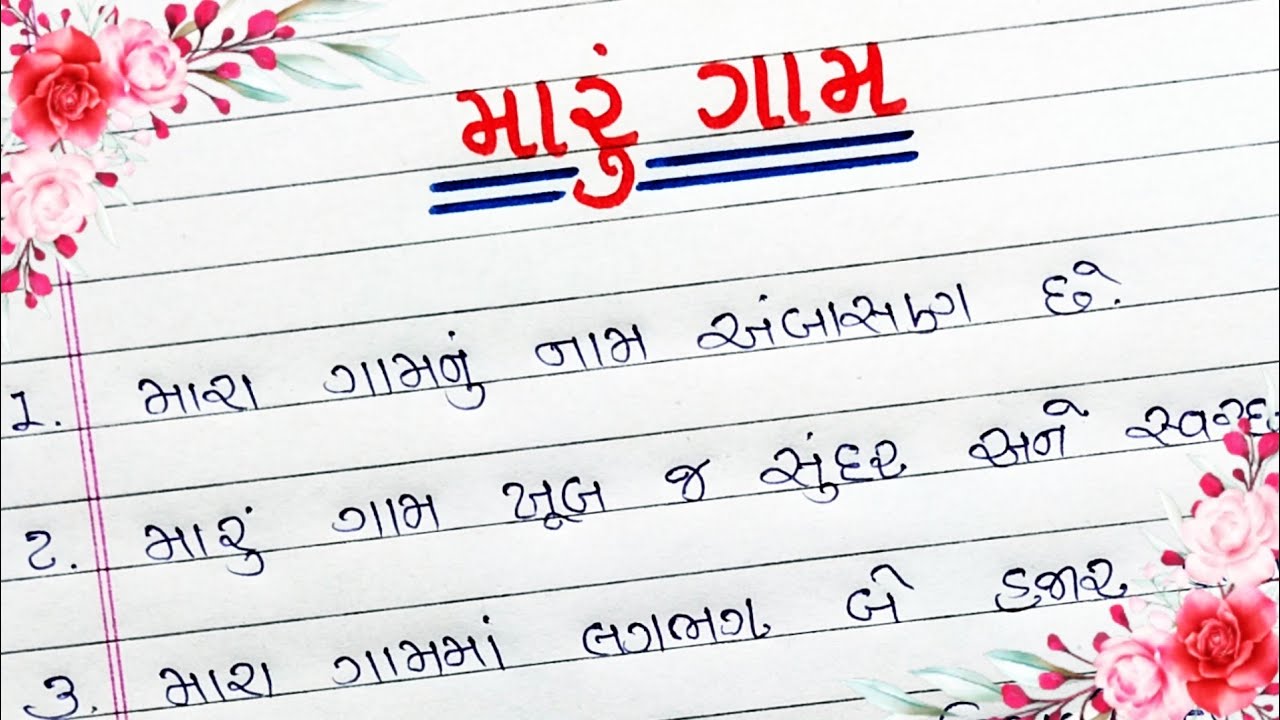 મારું ગામ
1. મારા ગામનું નામ અંબાસણ છે.
૨. મારું ગામ ખૂબ જ સુંદર અને
૩. મારા ગામમાં લગભગ બે હજાર